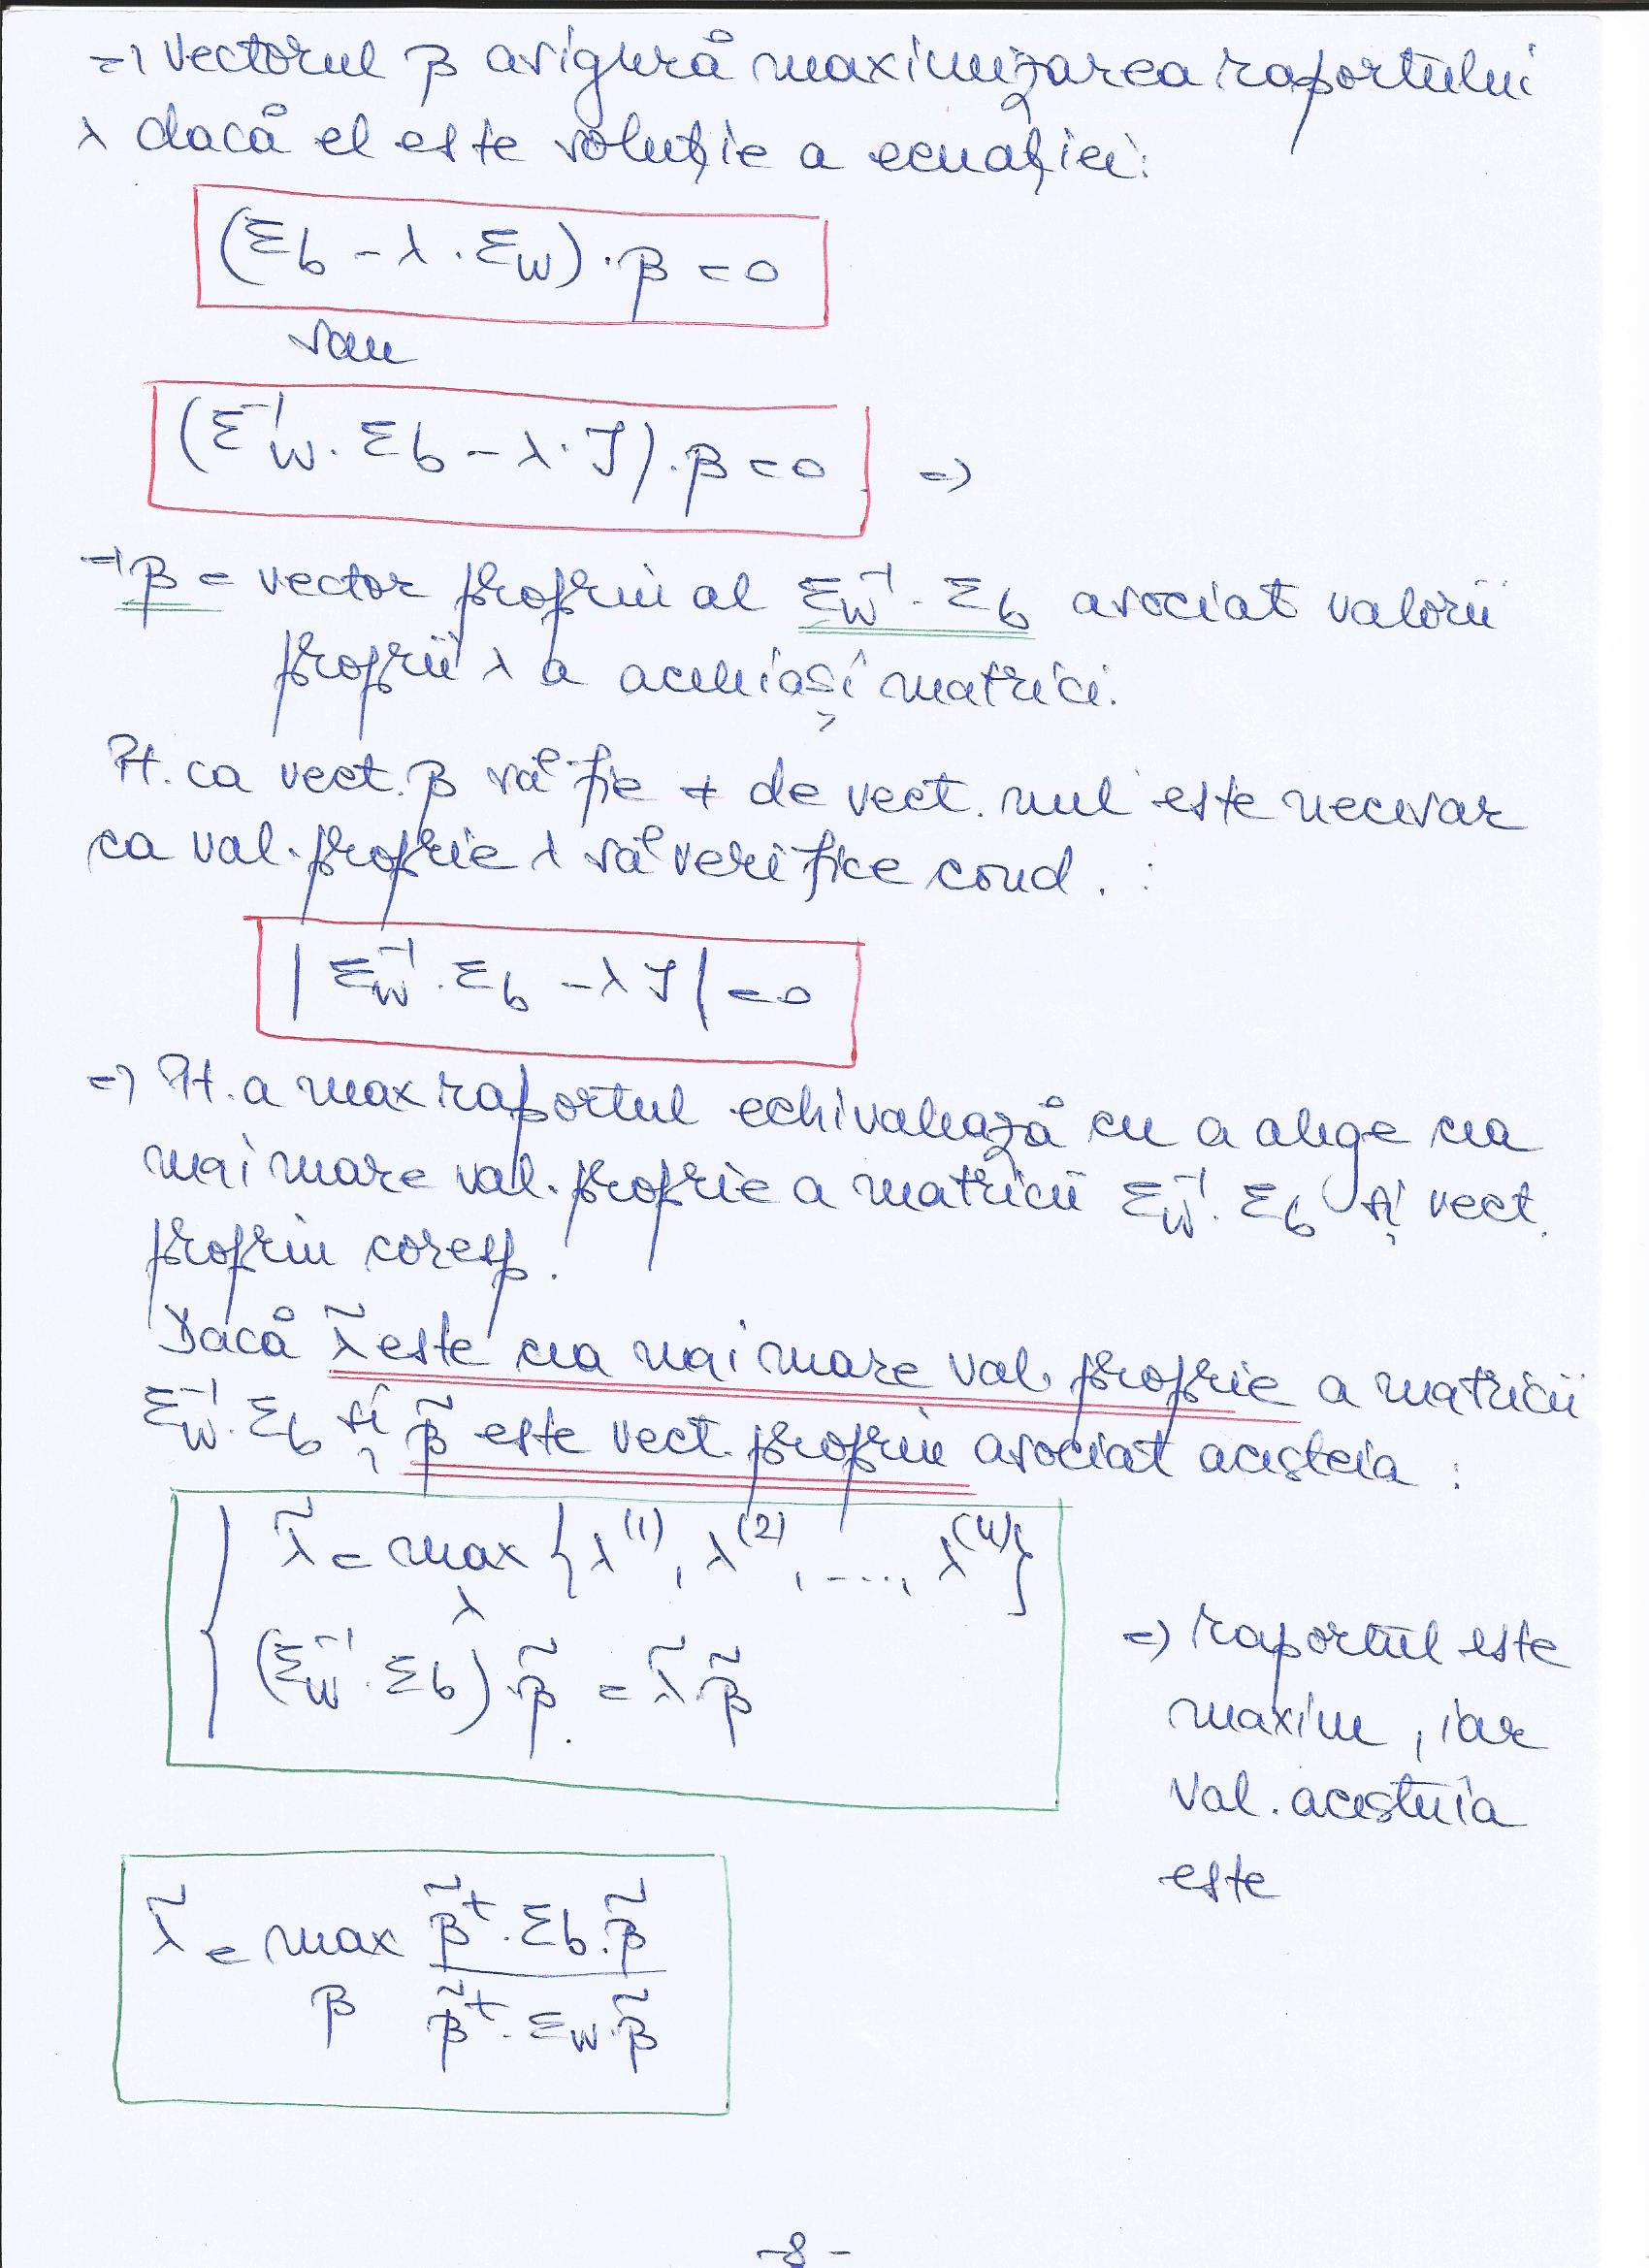 => Vectorul β asigură maximizarea raportului
λ dacă el este soluție a ecuației:
(Σb - λ · Σw) · β = 0
sau
(Σw⁻¹ · Σb - λ · I) · β = 0 =>
→ β = vector propriu al Σw⁻¹ · Σb asociat valorii
proprii λ a aceleiași matrici.
Pt. ca vect. β să fie ≠ de vect. nul este necesar
ca val. proprie λ să verifice cond. :
| Σw⁻¹ · Σb - λ I | = 0
=> Pt. a max raportul echivalează cu a alege cea
mai mare val. proprie a matricii Σw⁻¹ · Σb și vect.
propriu coresp.
Dacă λ̃ este cea mai mare val. proprie a matricii
Σw⁻¹ · Σb și β̃ este vect. propriu asociat acesteia :
λ̃ = max {λ⁽¹⁾, λ⁽²⁾, ..., λ⁽ⁿ⁾}
λ
(Σw⁻¹ · Σb) · β̃ = λ̃ · β̃
=> raportul este
maxim, iar
val. acestuia
este
λ̃ = max β̃ᵗ · Σb · β̃
β β̃ᵗ · Σw · β̃
- 8 -